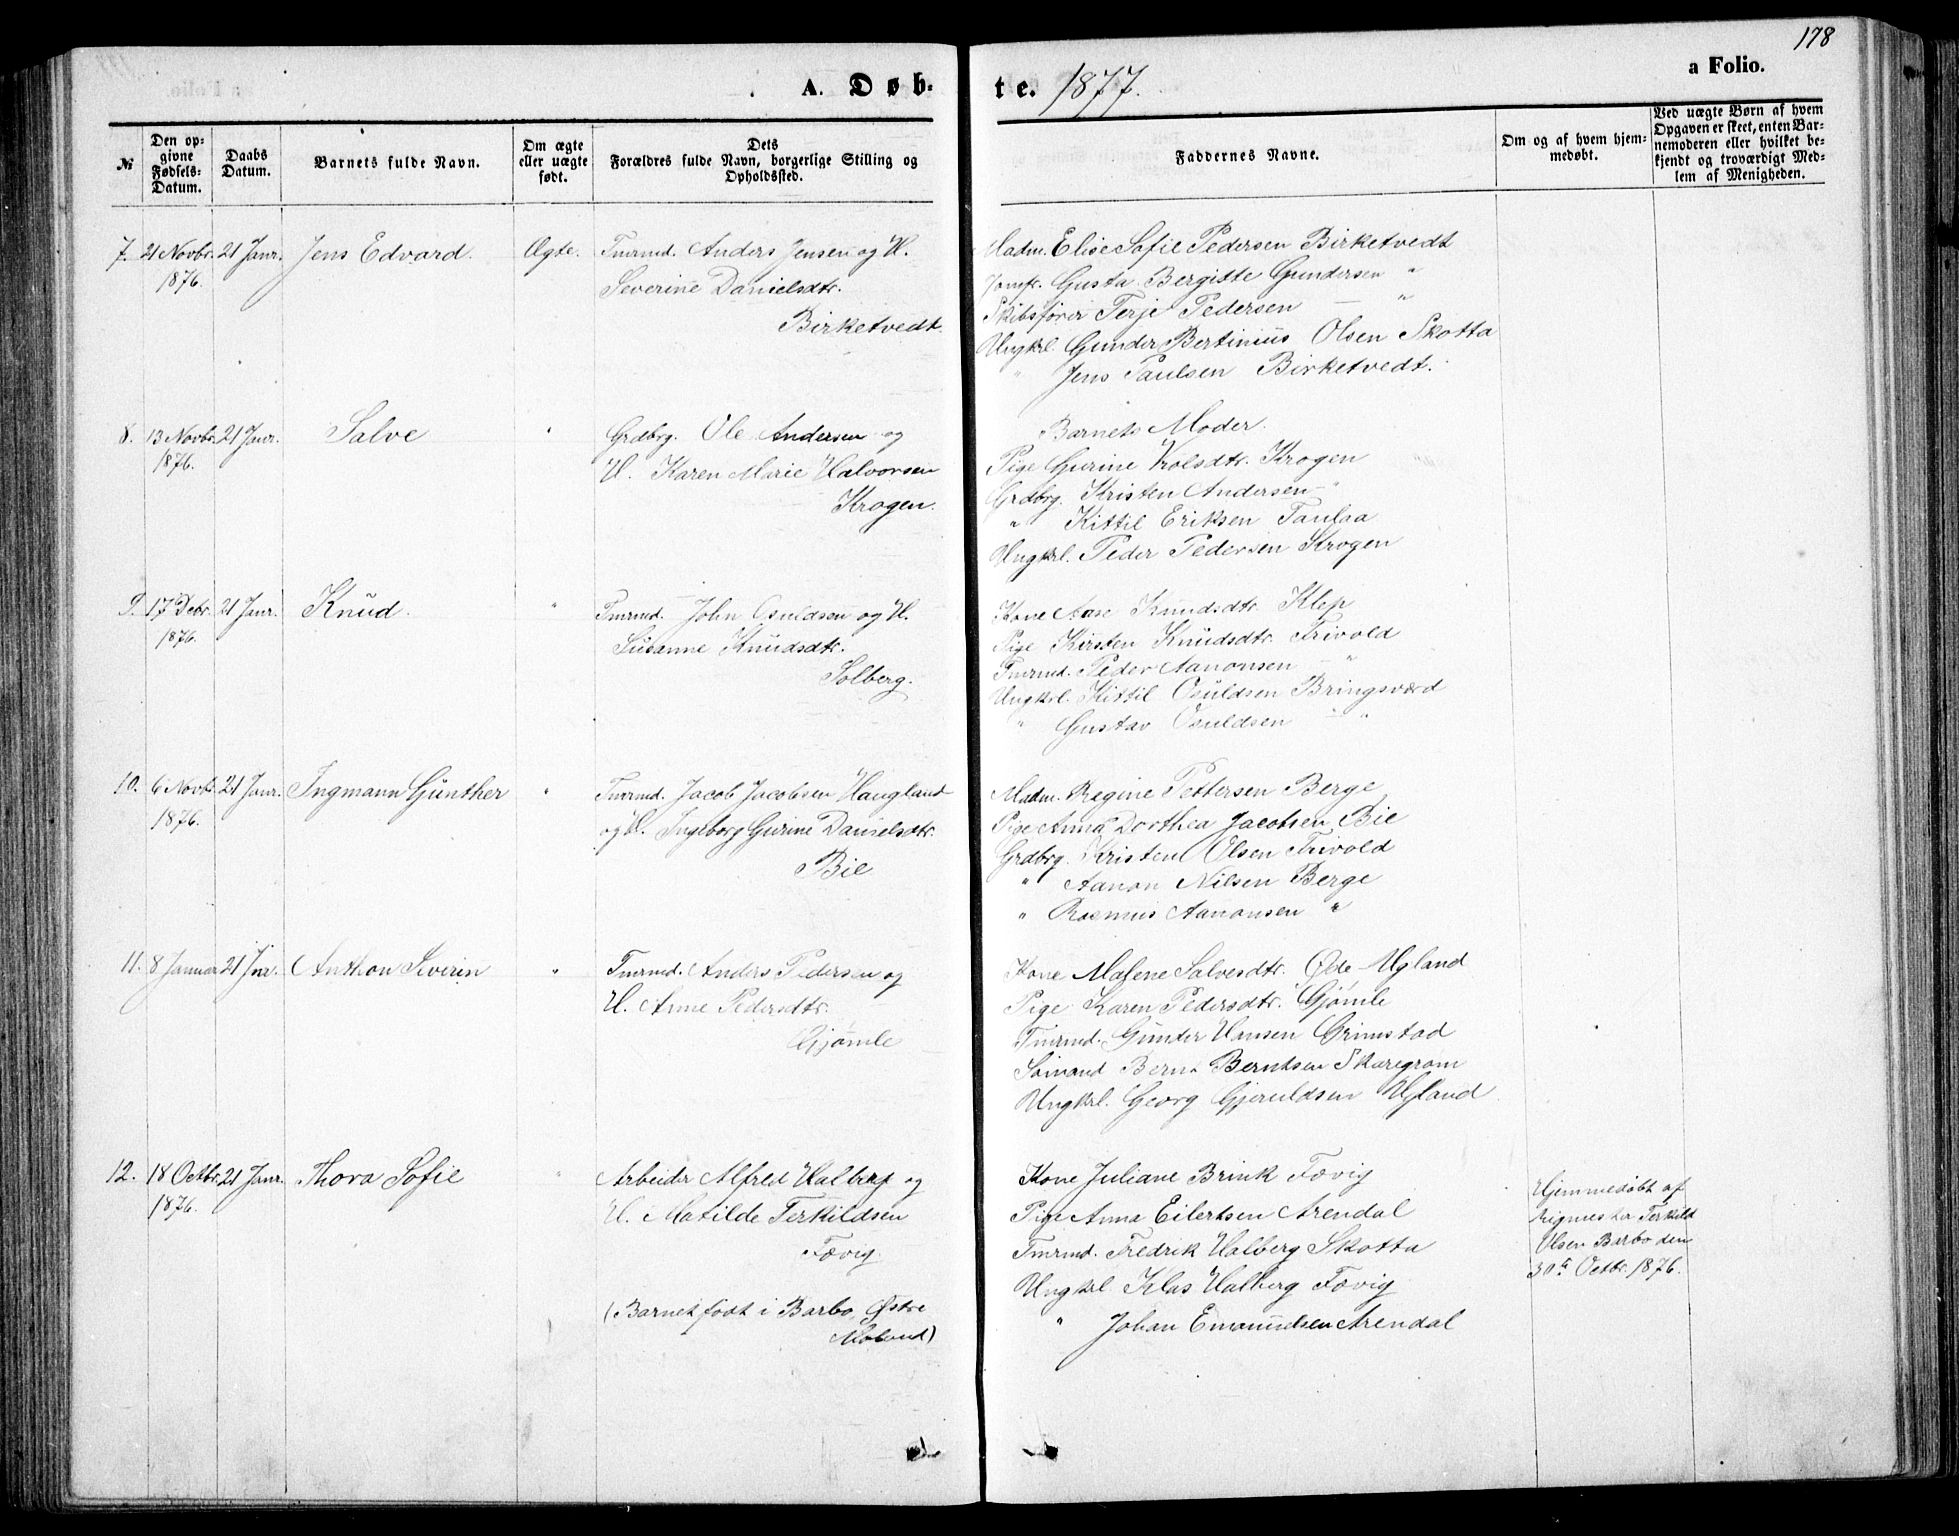 178
a Folio.
A. Døb-
te. 1877.
№
Den op-
givne
Fødsels-
Datum.
Daabs
Datum.
Barnets fulde Navn.
Om ægte
eller uægte
født.
Dets
Forældres fulde Navn, borgerlige Stilling og
Opholdssted.
Faddernes Navne.
Om og af hvem hjem-
medøbt.
Ved uægte Børn af hvem
Opgaven er skeet, enten Bar-
nemoderen eller hvilket be-
kjendt og troværdigt Med-
lem af Menigheden.
7. 21 Novbr. 21 Janr. Jens Edvard. Ægte. Tmrmd. Anders Jensen og H.
1876.
Severine Danielsdtr.
Birketvedt.
Madm. Elise Sofie Pedersen Birketvedt
Jomfr. Gusta Bergitte Gundersen "
Skibsfører Terje Pedersen — "
Ungkrl. Gunder Bertinius Olsen Skotta
" Jens Paulsen Birketvedt.
8. 13 Novbr. 21 Janr. Salve " Grdbrg. Ole Andersen og
1876.
H. Karen Marie Halvorsen
Krogen.
Barnets Moder.
Pige Gurine Kolsdtr. Krogen
Grdbrg. Kristen Andersen "
" Kittil Eriksen Taulaa
Ungkrl. Peder Pedersen Krogen
9. 17 Decbr. 21 Janr. Knud. " Tmrmd. John Osuldsen og H.
1876.
Susanne Knudsdtr.
Solberg.
Kone Aase Knudsdtr. Klep
Pige Kirsten Knudsdtr. Frivold
Tmrmd. Peder Aanonsen — "
Ungkrl. Kittil Osuldsen Bringsværd
" Gustav Osuldsen — "
10. 6 Novbr. 21 Janr. Ingmann Günther " Tmrmd. Jacob Jacobsen Haugland
1876.
og H. Ingeborg Gurine Danielsdtr.
Bie
Madm. Regine Pettersen Berge
Pige Anna Dorthea Jacobsen Bie
Grdbrg. Kristen Olsen Frivold
" Aanon Nilsen Berge
" Rasmus Aanonsen "
11. 8 Januar 21 Jnr. Anthon Severin " Tmrmd. Anders Pedersen og
H. Anne Pedersdtr.
Gjømle
Kone Malene Salvesdtr. Øde-Ugland
Pige Karen Pedersdtr. Gjømle
Tmrmd. Gunder Hansen Grimstad
Sømand Bernt Berntsen Skaregrøm
Ungkrl. Georg Gjeruldsen Ugland
12. 18 Octbr. 21 Janr. Thora Sofie " Arbeider Alfred Halberg og
1876.
H. Matilde Terkildsen
Fævig.
(Barnet født i Barbo, Østre
Moland)
Kone Juliane Brink Fævig
Pige Anna Eilertsen Arendal
Tmrmd. Fredrik Halberg Skotta
Ungkrl. Klas Halberg Fævig
" Johan Emanuelsen Arendal
Hjemmedøbt af
Rigmester Terkild
Olsen Barbo den
30te Octbr. 1876.